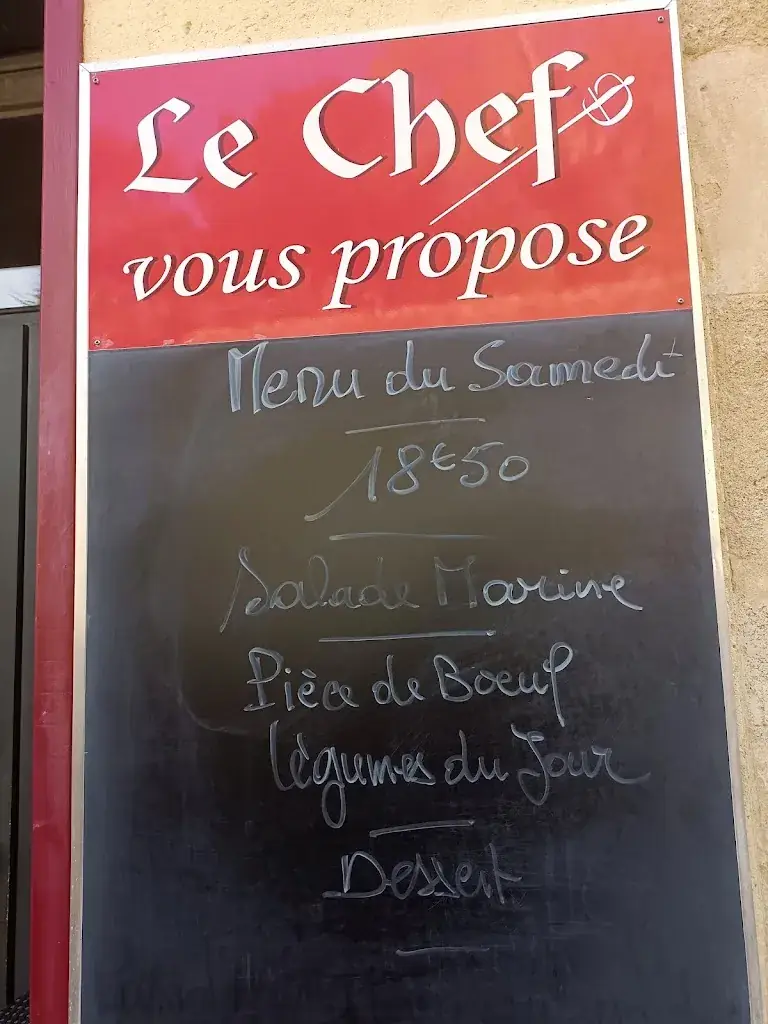 Le Chef
vous propose
Menu du Samedi
18€50
Salade Marine
Pièce de Boeuf
légumes du Jour
Dessert